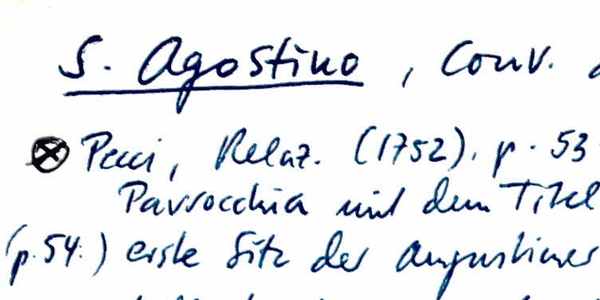 S. Agostino, Conv.
⊗ Pecci, Relaz. (1752). p. 53
Parrocchia mit dem Titel
(p. 54.) erste Sitz der Augustiner